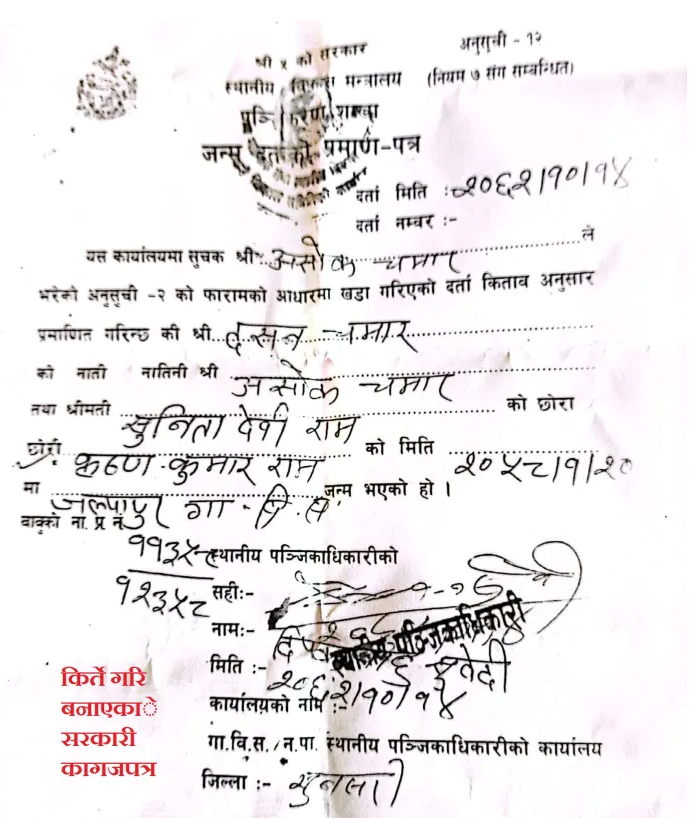 अनुसूची - १२
श्री ५ को सरकार
स्थानीय विकास मन्त्रालय (नियम ७ संग सम्बन्धित)
पञ्जिकरण शाखा
जन्म दर्ताको प्रमाण-पत्र
दर्ता मिति :- २०६२।१०।१४
दर्ता नम्बर :-
यस कार्यालयमा सुचक श्री असोक चमार ले
भरेको अनुसूची -२ को फारामको आधारमा खडा गरिएको दर्ता किताब अनुसार
प्रमाणित गरिन्छ की श्री दसन चमार
को नाती नातिनी श्री असोक चमार
तथा श्रीमती सुनिता देवी राम को छोरा
छोरी कृष्ण कुमार राम को मिति २०५८।१।२०
मा जल्पापुर गा. वि. स. जन्म भएको हो ।
बाबुको ना. प्र. नं.
११३५८ स्थानीय पञ्जिकाधिकारीको
१२३५८ सही:-
नाम:-
स्थानीय पञ्जिकाधिकारी
मिति :- २०६२।१०।१४
कार्यालयको नाम :-
गा.वि.स. / न.पा. स्थानीय पञ्जिकाधिकारीको कार्यालय
जिल्ला :-
किर्ते गरि
बनाएकाे
सरकारी
कागजपत्र